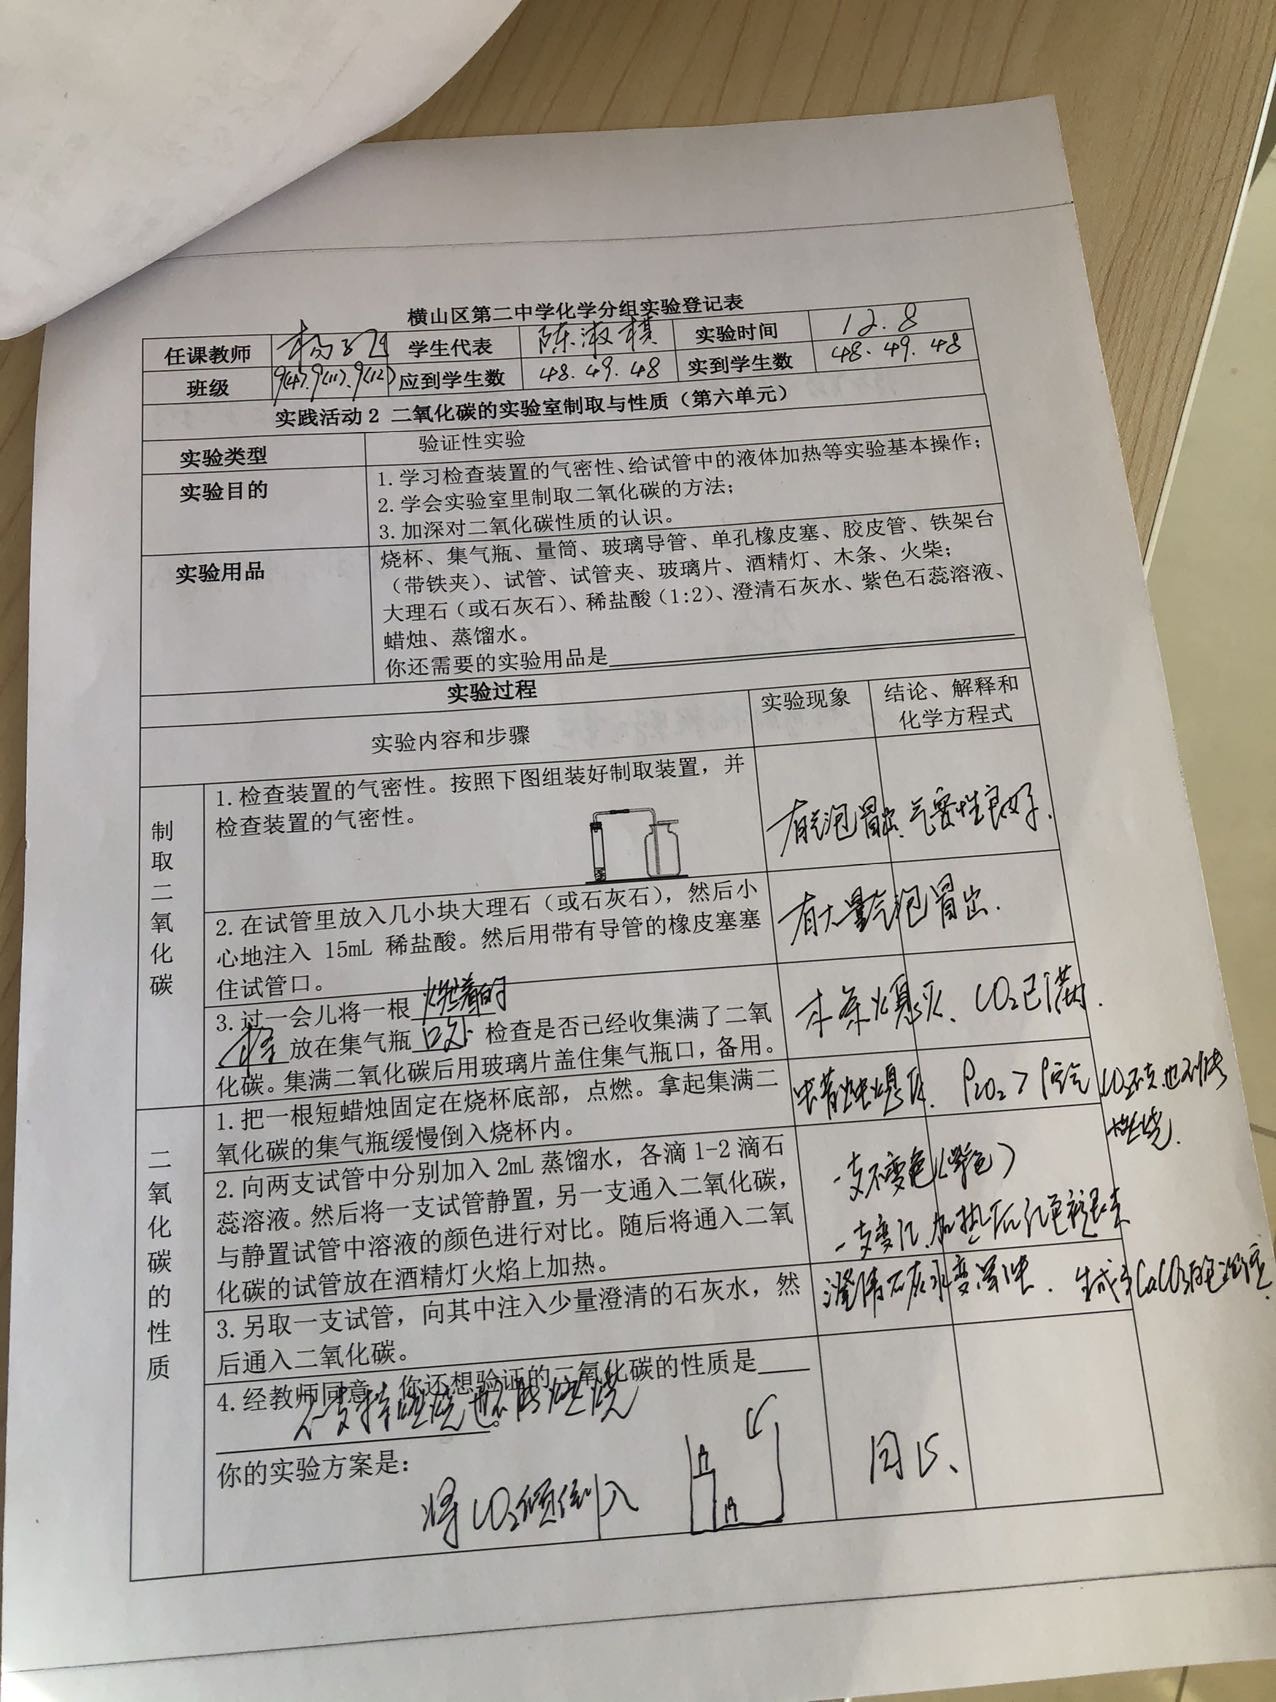 横山区第二中学化学分组实验登记表
任课教师 学生代表 陈淑棋 实验时间 12.8
班级 9(4).9(11).9(12) 应到学生数 48.49.48 实到学生数 48.49.48
实践活动2 二氧化碳的实验室制取与性质（第六单元）
实验类型 验证性实验
实验目的 1.学习检查装置的气密性、给试管中的液体加热等实验基本操作；
2.学会实验室里制取二氧化碳的方法；
3.加深对二氧化碳性质的认识。
实验用品 烧杯、集气瓶、量筒、玻璃导管、单孔橡皮塞、胶皮管、铁架台
（带铁夹）、试管、试管夹、玻璃片、酒精灯、木条、火柴；
大理石（或石灰石）、稀盐酸（1:2）、澄清石灰水、紫色石蕊溶液、
蜡烛、蒸馏水。
你还需要的实验用品是
实验过程
实验内容和步骤 实验现象 结论、解释和
化学方程式
制取二氧化碳
1.检查装置的气密性。按照下图组装好制取装置，并
检查装置的气密性。
有气泡冒出、气密性良好.
2.在试管里放入几小块大理石（或石灰石），然后小
心地注入 15mL 稀盐酸。然后用带有导管的橡皮塞塞
住试管口。
有大量气泡冒出.
3.过一会儿将一根 燃着的
放在集气瓶 口处 检查是否已经收集满了二氧
化碳。集满二氧化碳后用玻璃片盖住集气瓶口，备用。
木条熄灭、CO₂已满.
二氧化碳的性质
1.把一根短蜡烛固定在烧杯底部，点燃。拿起集满二
氧化碳的集气瓶缓慢倒入烧杯内。
蜡烛熄灭. ρCO₂>ρ空气
燃烧.
2.向两支试管中分别加入2mL蒸馏水，各滴1-2滴石
蕊溶液。然后将一支试管静置，另一支通入二氧化碳，
与静置试管中溶液的颜色进行对比。随后将通入二氧
化碳的试管放在酒精灯火焰上加热。
一支不变色(紫色)
一支变红.加热后红色褪去
3.另取一支试管，向其中注入少量澄清的石灰水，然
后通入二氧化碳。
澄清石灰水变浑浊. 生成了CaCO₃白色沉淀.
4.经教师同意，你还想验证的二氧化碳的性质是
不支持燃烧也不能燃烧
你的实验方案是：
将CO₂倾倒入
同上、